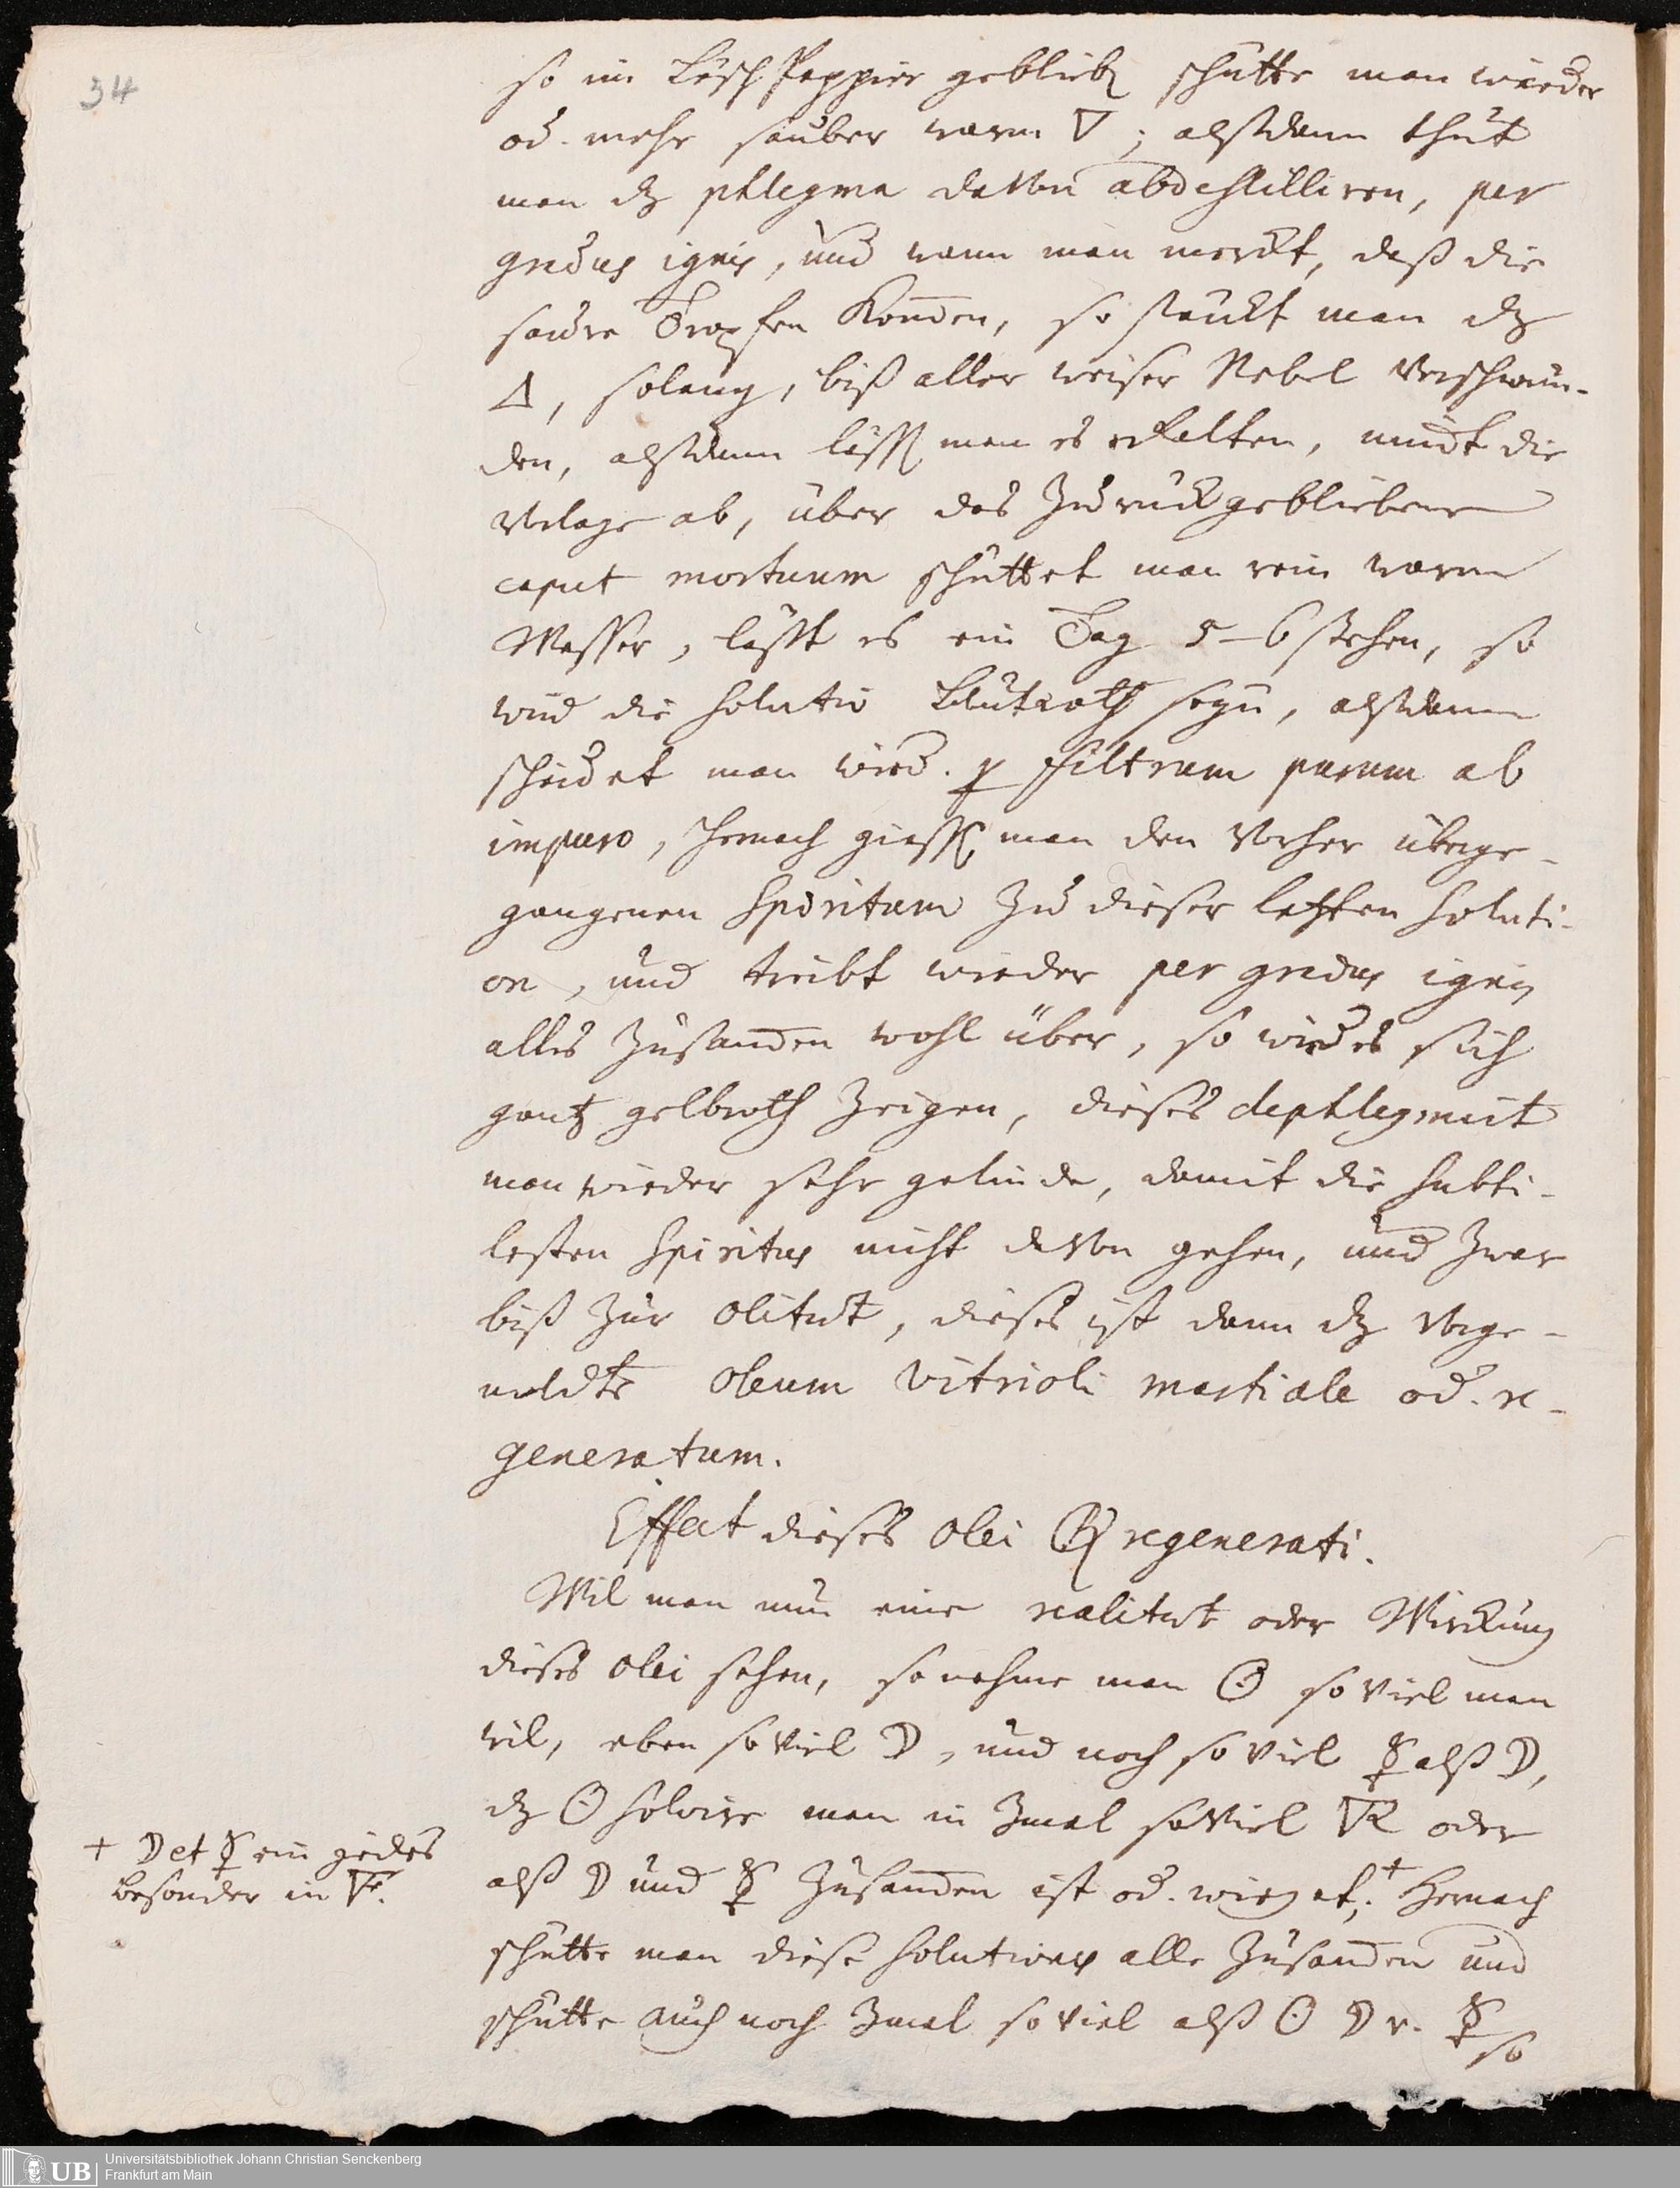 34
so im Lösch Pappier geblieb. schütte man wieder
od. mehr sauber warm 🜄; alßdann thut
man dz phlegma davon abdestilliren, per
gradus ignis, und wann man merckt, daß die
saure Tropfen kom̅en, so stärckt man dz
🜂, solang, biß aller weiser Nebel verschwun-
den, alßdann läst man es erkalten, nimbt die
Vorlage ab, über das zuruckgebliebene
caput mortuum schüttet man rein warm
Wasser, läßt es ein Tag 5–6 stehen, so
wird die Solutio blutroth seyn, alßdann
scheidet man wied. p filtrum purum ab
impuro, hernach giest man den vorher überge-
gangenen Spiritum zu dieser letsten Soluti-
on, und treibt wieder per gradus ignis
alles zusam̅en wohl über, so wird es sich
gantz gelbroth zeigen, dieses dephlegmirt
man wieder sehr gelinde, damit die subti-
lesten Spiritus nicht davon gehen, und zwar
biß zur olitæt, dieses ist dann dz vorge-
meldte oleum vitrioli martiale od. re-
generatum.
Effect dieses olei 🜖 regenerati.
Wil man nun eine realitæt oder Wirckung
dieses olei sehen, so nehme man ☉ so viel man
wil, eben so viel ☽, und noch so viel ☿ alß ☽,
dz ☉ solvire man in 3mal so viel 🜆 oder
alß ☽ und ☿ zusam̅en ist od. wieget; + Hernach
schütte man diese Solutiones alle zusam̅en und
schütte auch noch 3mal so viel alß ☉ ☽ u. ☿
so
+ ☽ et ☿ ein jedes
besonder in 🜅.
Universitätsbibliothek Johann Christian Senckenberg
UB Frankfurt am Main